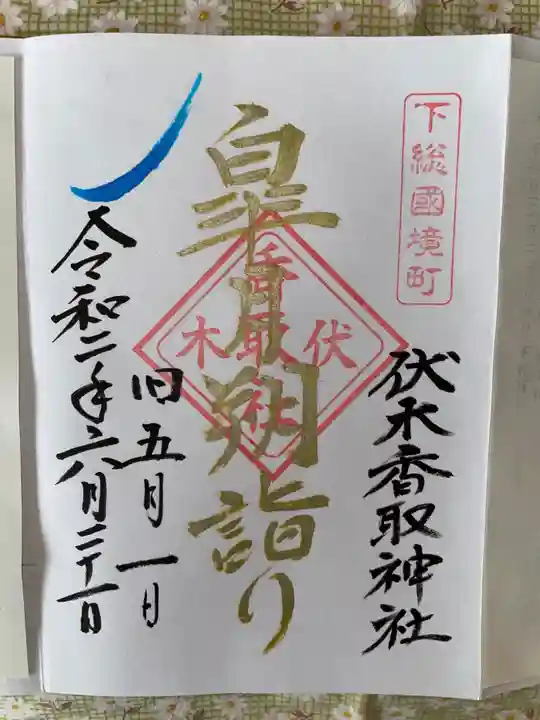 下総國境町
伏木香取神社
皐月朔詣り
伏木
香取社
旧五月一日
令和二年六月二十一日